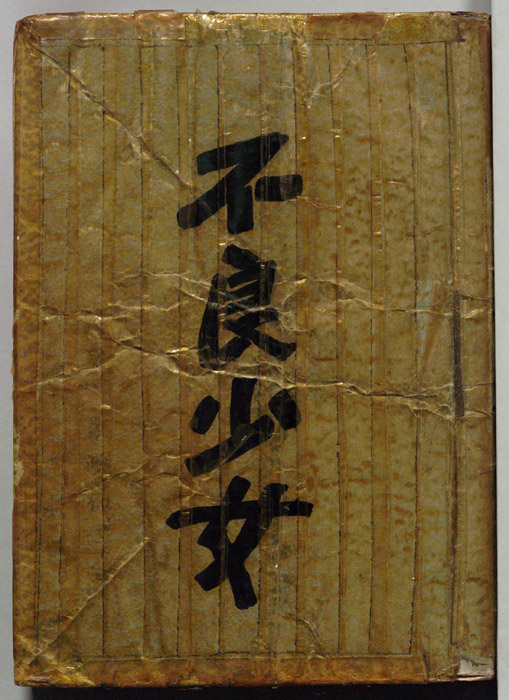 不良少女